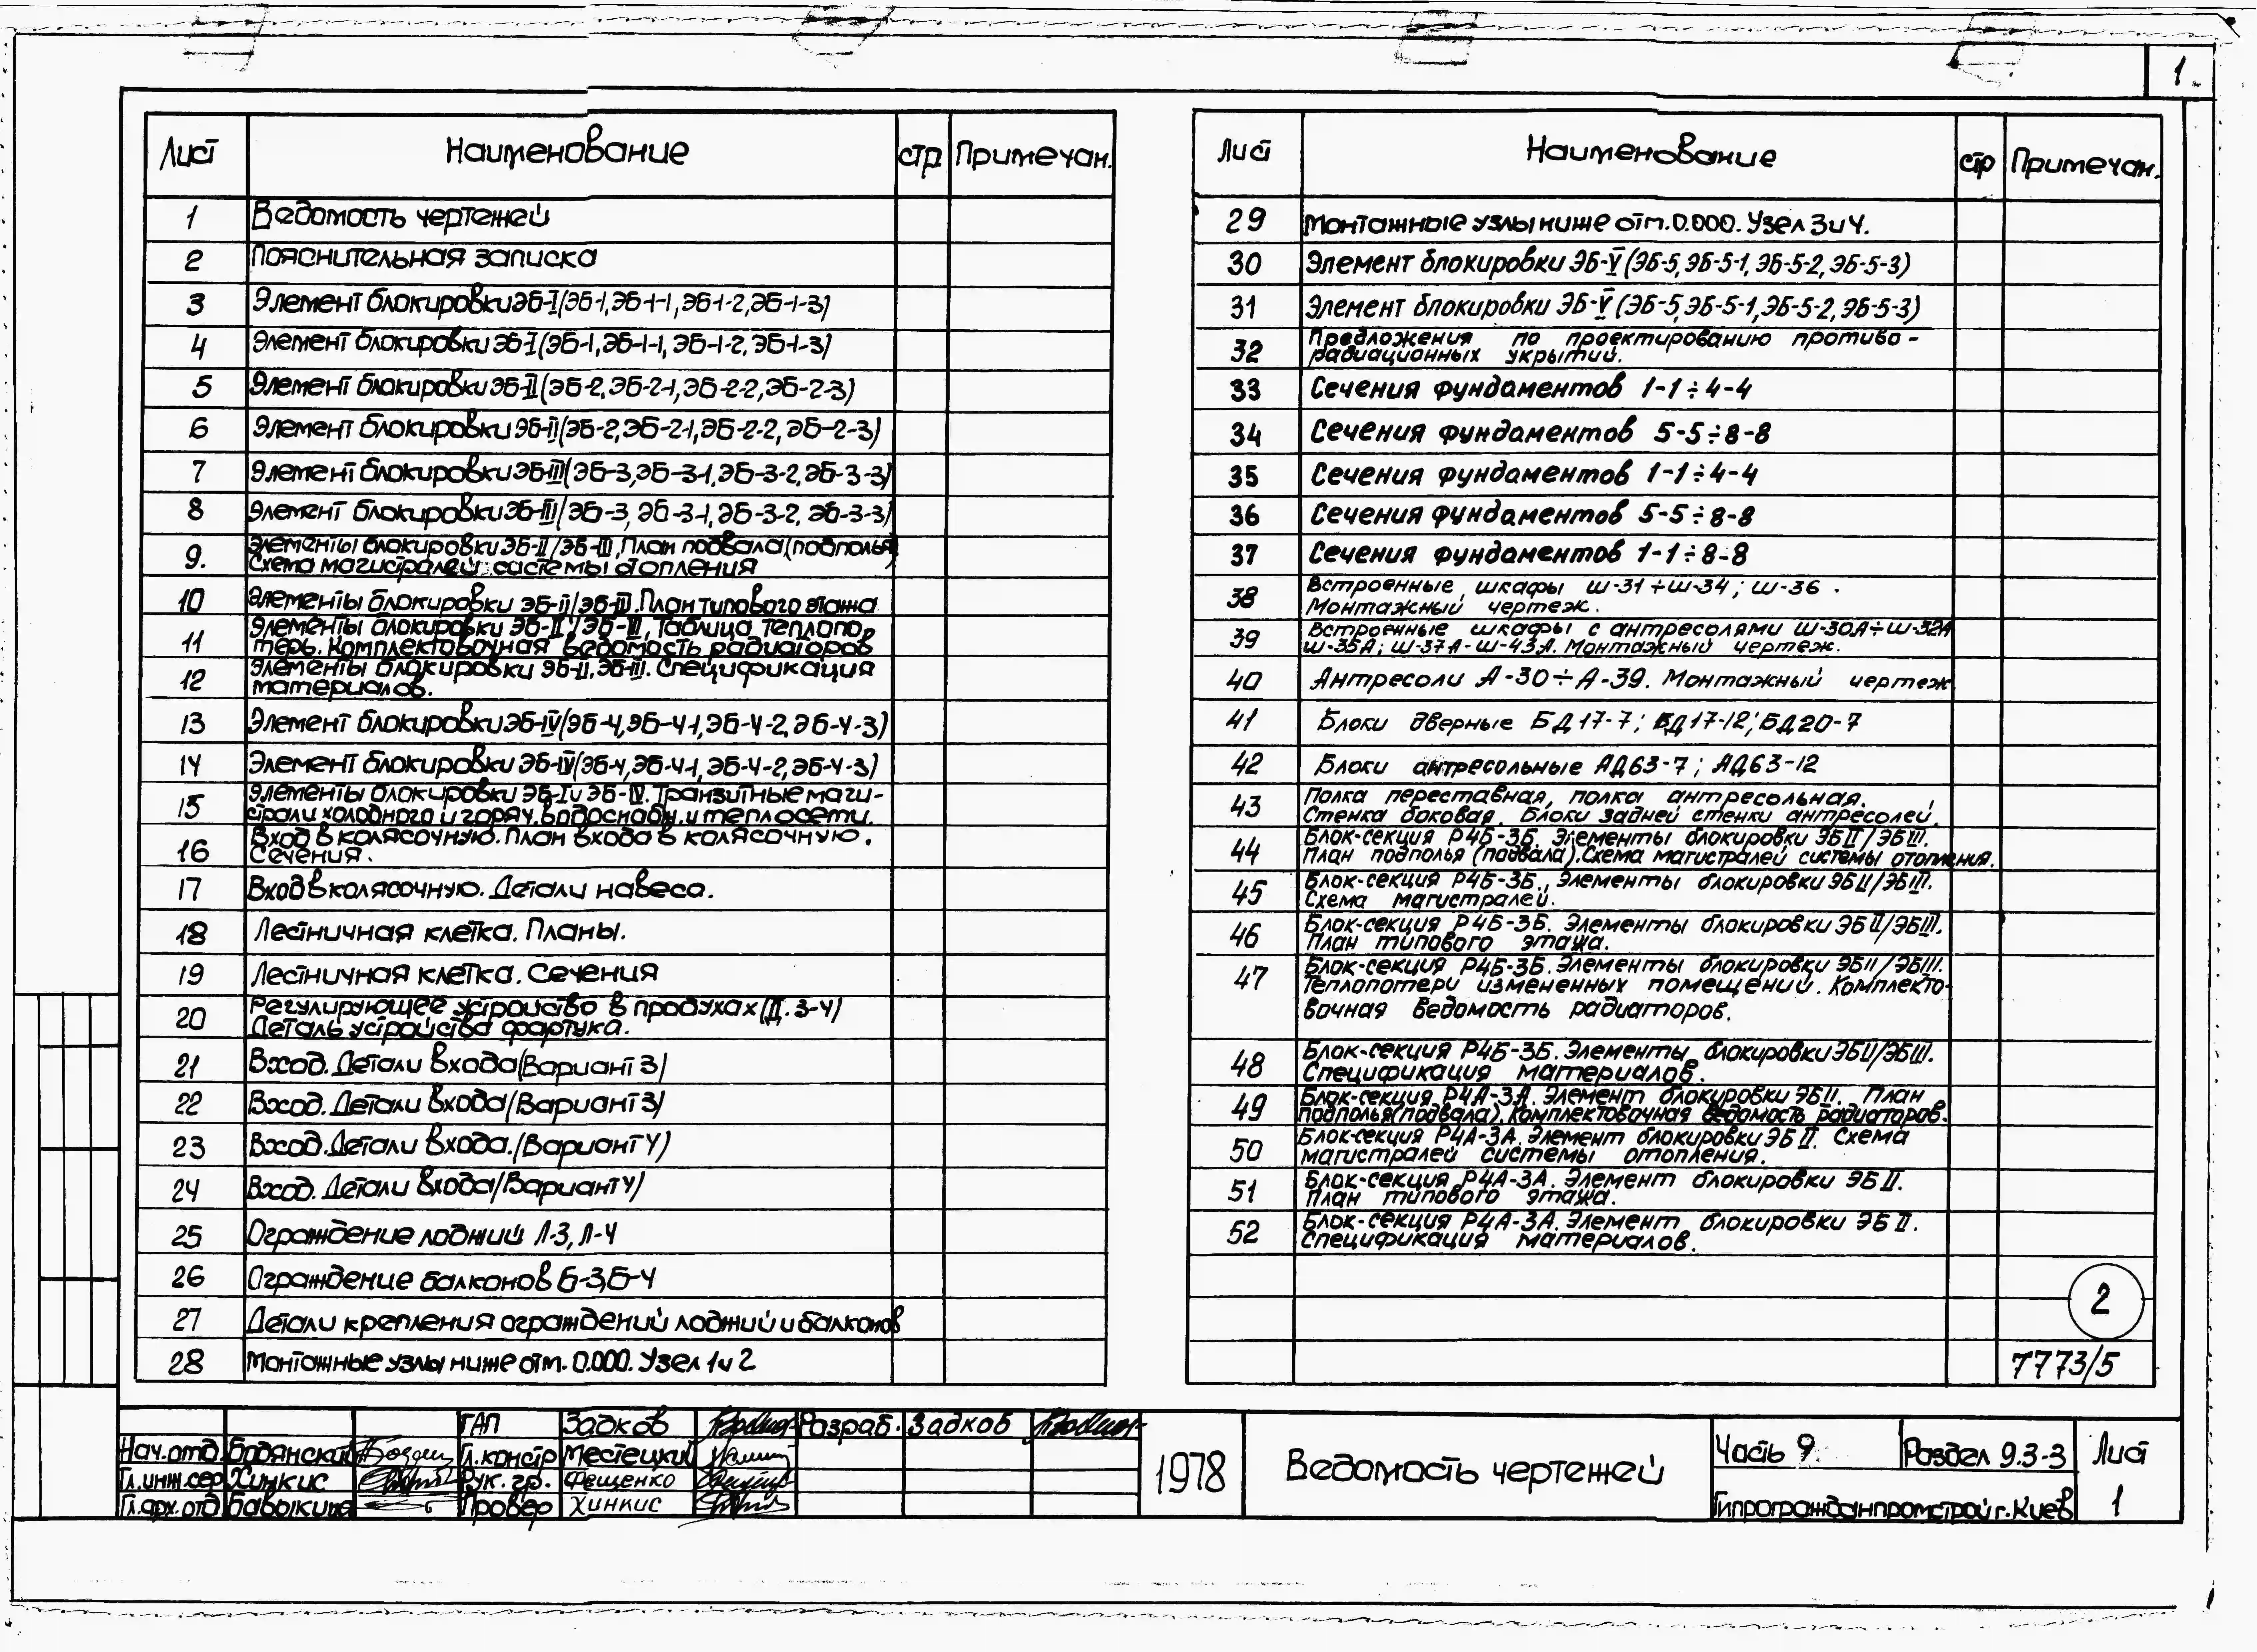 1
Лист Наименование стр Примечан.
1 Ведомость чертежей
2 Пояснительная записка
3 Элемент блокировки ЭБ-I (ЭБ-1, ЭБ-1-1, ЭБ-1-2, ЭБ-1-3)
4 Элемент блокировки ЭБ-I (ЭБ-1, ЭБ-1-1, ЭБ-1-2, ЭБ-1-3)
5 Элемент блокировки ЭБ-II (ЭБ-2, ЭБ-2-1, ЭБ-2-2, ЭБ-2-3)
6 Элемент блокировки ЭБ-II (ЭБ-2, ЭБ-2-1, ЭБ-2-2, ЭБ-2-3)
7 Элемент блокировки ЭБ-III (ЭБ-3, ЭБ-3-1, ЭБ-3-2, ЭБ-3-3)
8 Элемент блокировки ЭБ-III (ЭБ-3, ЭБ-3-1, ЭБ-3-2, ЭБ-3-3)
9. Элементы блокировки ЭБ-II/ЭБ-III, План подвала (подполья)
Схема магистралей системы отопления
10 Элементы блокировки ЭБ-II/ЭБ-III. План типового этажа
11 Элементы блокировки ЭБ-II/ЭБ-III, Таблица теплопо-
терь. Комплектовочная ведомость радиаторов
12 Элементы блокировки ЭБ-II, ЭБ-III. Спецификация
материалов.
13 Элемент блокировки ЭБ-IV (ЭБ-4, ЭБ-4-1, ЭБ-4-2, ЭБ-4-3)
14 Элемент блокировки ЭБ-IV (ЭБ-4, ЭБ-4-1, ЭБ-4-2, ЭБ-4-3)
15 Элементы блокировки ЭБ-I и ЭБ-IV. Транзитные маги-
страли холодного и горяч. водоснабж. и теплосети.
16 Вход в колясочную. План входа в колясочную.
Сечения.
17 Вход в колясочную. Детали навеса.
18 Лестничная клетка. Планы.
19 Лестничная клетка. Сечения
20 Регулирующее устройство в продухах (Д. 3-4)
Деталь устройства фартука.
21 Вход. Детали входа (Вариант 3)
22 Вход. Детали входа (Вариант 3)
23 Вход. Детали входа. (Вариант 4)
24 Вход. Детали входа (Вариант 4)
25 Ограждение лоджий Л-3, Л-4
26 Ограждение балконов Б-3, Б-4
27 Детали крепления ограждений лоджий и балконов
28 Монтажные узлы ниже отм. 0.000. Узел 1 и 2
Лист Наименование стр Примечан.
29 Монтажные узлы ниже отм. 0.000. Узел 3 и 4.
30 Элемент блокировки ЭБ-V (ЭБ-5, ЭБ-5-1, ЭБ-5-2, ЭБ-5-3)
31 Элемент блокировки ЭБ-V (ЭБ-5, ЭБ-5-1, ЭБ-5-2, ЭБ-5-3)
32 Предложения по проектированию противо-
радиационных укрытий.
33 Сечения фундаментов 1-1÷4-4
34 Сечения фундаментов 5-5÷8-8
35 Сечения фундаментов 1-1÷4-4
36 Сечения фундаментов 5-5÷8-8
37 Сечения фундаментов 1-1÷8-8
38 Встроенные шкафы Ш-31÷Ш-34; Ш-36.
Монтажный чертеж.
39 Встроенные шкафы с антресолями Ш-30А÷Ш-32А
Ш-35А; Ш-37А-Ш-43А. Монтажный чертеж.
40 Антресоли А-30÷А-39. Монтажный чертеж
41 Блоки дверные БД17-7; БД17-12; БД20-7
42 Блоки антресольные АД63-7; АД63-12
43 Полка переставная, полка антресольная.
Стенка боковая. Блоки задней стенки антресолей.
44 Блок-секция Р4Б-3Б. Элементы блокировки ЭБII/ЭБIII.
План подполья (подвала). Схема магистралей системы отопления.
45 Блок-секция Р4Б-3Б., Элементы блокировки ЭБII/ЭБIII.
Схема магистралей.
46 Блок-секция Р4Б-3Б. Элементы блокировки ЭБII/ЭБIII.
План типового этажа.
47 Блок-секция Р4Б-3Б. Элементы блокировки ЭБII/ЭБIII.
Теплопотери измененных помещений. Комплекто-
вочная ведомость радиаторов.
48 Блок-секция Р4Б-3Б. Элементы блокировки ЭБII/ЭБIII.
Спецификация материалов.
49 Блок-секция Р4А-3А. Элемент блокировки ЭБII. План
подполья (подвала). Комплектовочная ведомость радиаторов.
50 Блок-секция Р4А-3А. Элемент блокировки ЭБII. Схема
магистралей системы отопления.
51 Блок-секция Р4А-3А. Элемент блокировки ЭБII.
План типового этажа.
52 Блок-секция Р4А-3А. Элемент блокировки ЭБII.
Спецификация материалов.
2
7773/5
ГАП Задков Разраб. Задков
Нач. отд. Бодянский Гл. констр Местецкий
Гл. инж. сер Хинкис Рук. гр. Фещенко
Гл. арх. отд Бавыкина Провер Хинкис
1978
Ведомость чертежей
Часть 9 Раздел 9.3-3 Лист
Гипрогражданпромстрой г. Киев 1